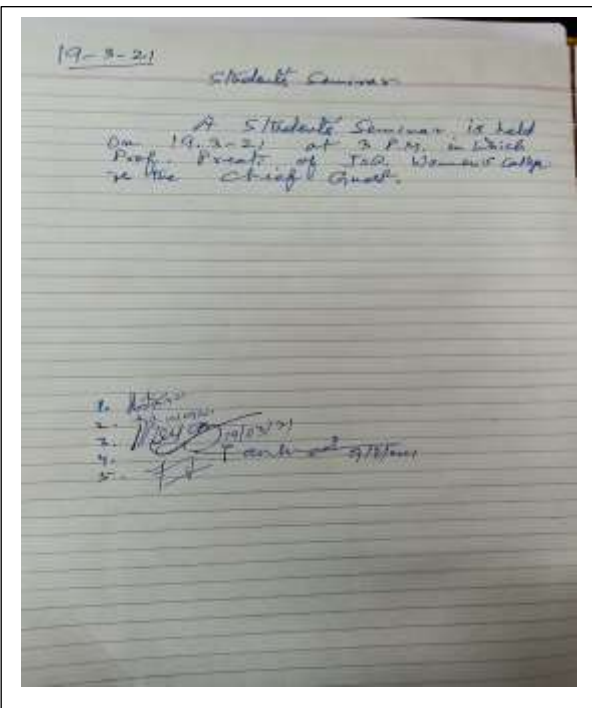 19-3-21
Students Seminar
A Students Seminar is held
on 19.3-21 at 3 P.M. in which
Prof. Preeti of J.D. Women's College
is the Chief Guest.
1.
2.
3. 19/03/21
4.
5.